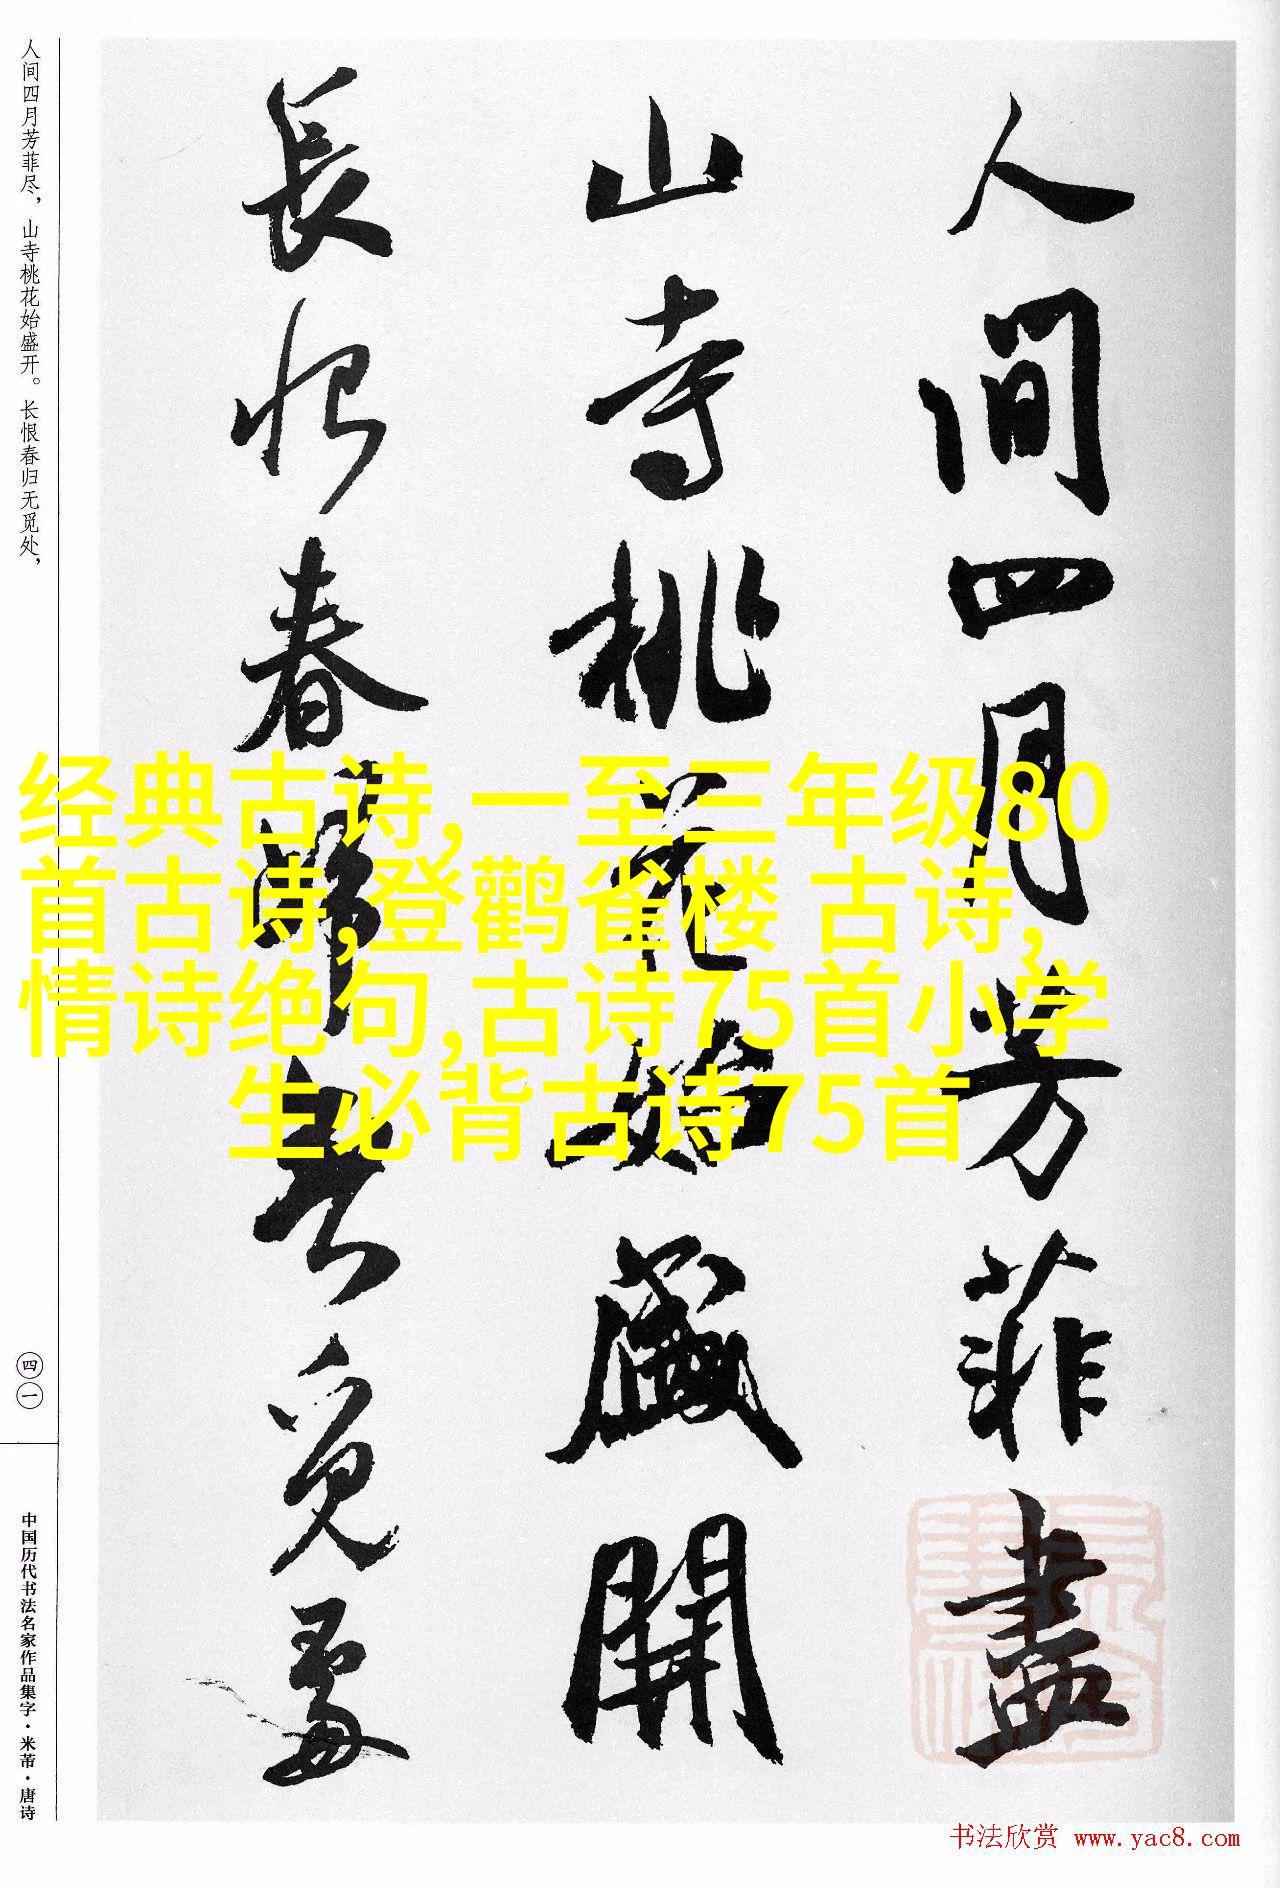 人间四月芳菲尽，山寺桃花始盛开。长恨春归无觅处，
四一
中国历代书法名家作品集字·米芾·唐诗
人间四月芳菲盡
山寺桃花始盛開
長恨春歸無覓處
经典古诗,一至三年级80
首古诗,登鹳雀楼 古诗,
情诗绝句,古诗75首小学
生必背古诗75首
书法欣赏 www.yac8.com